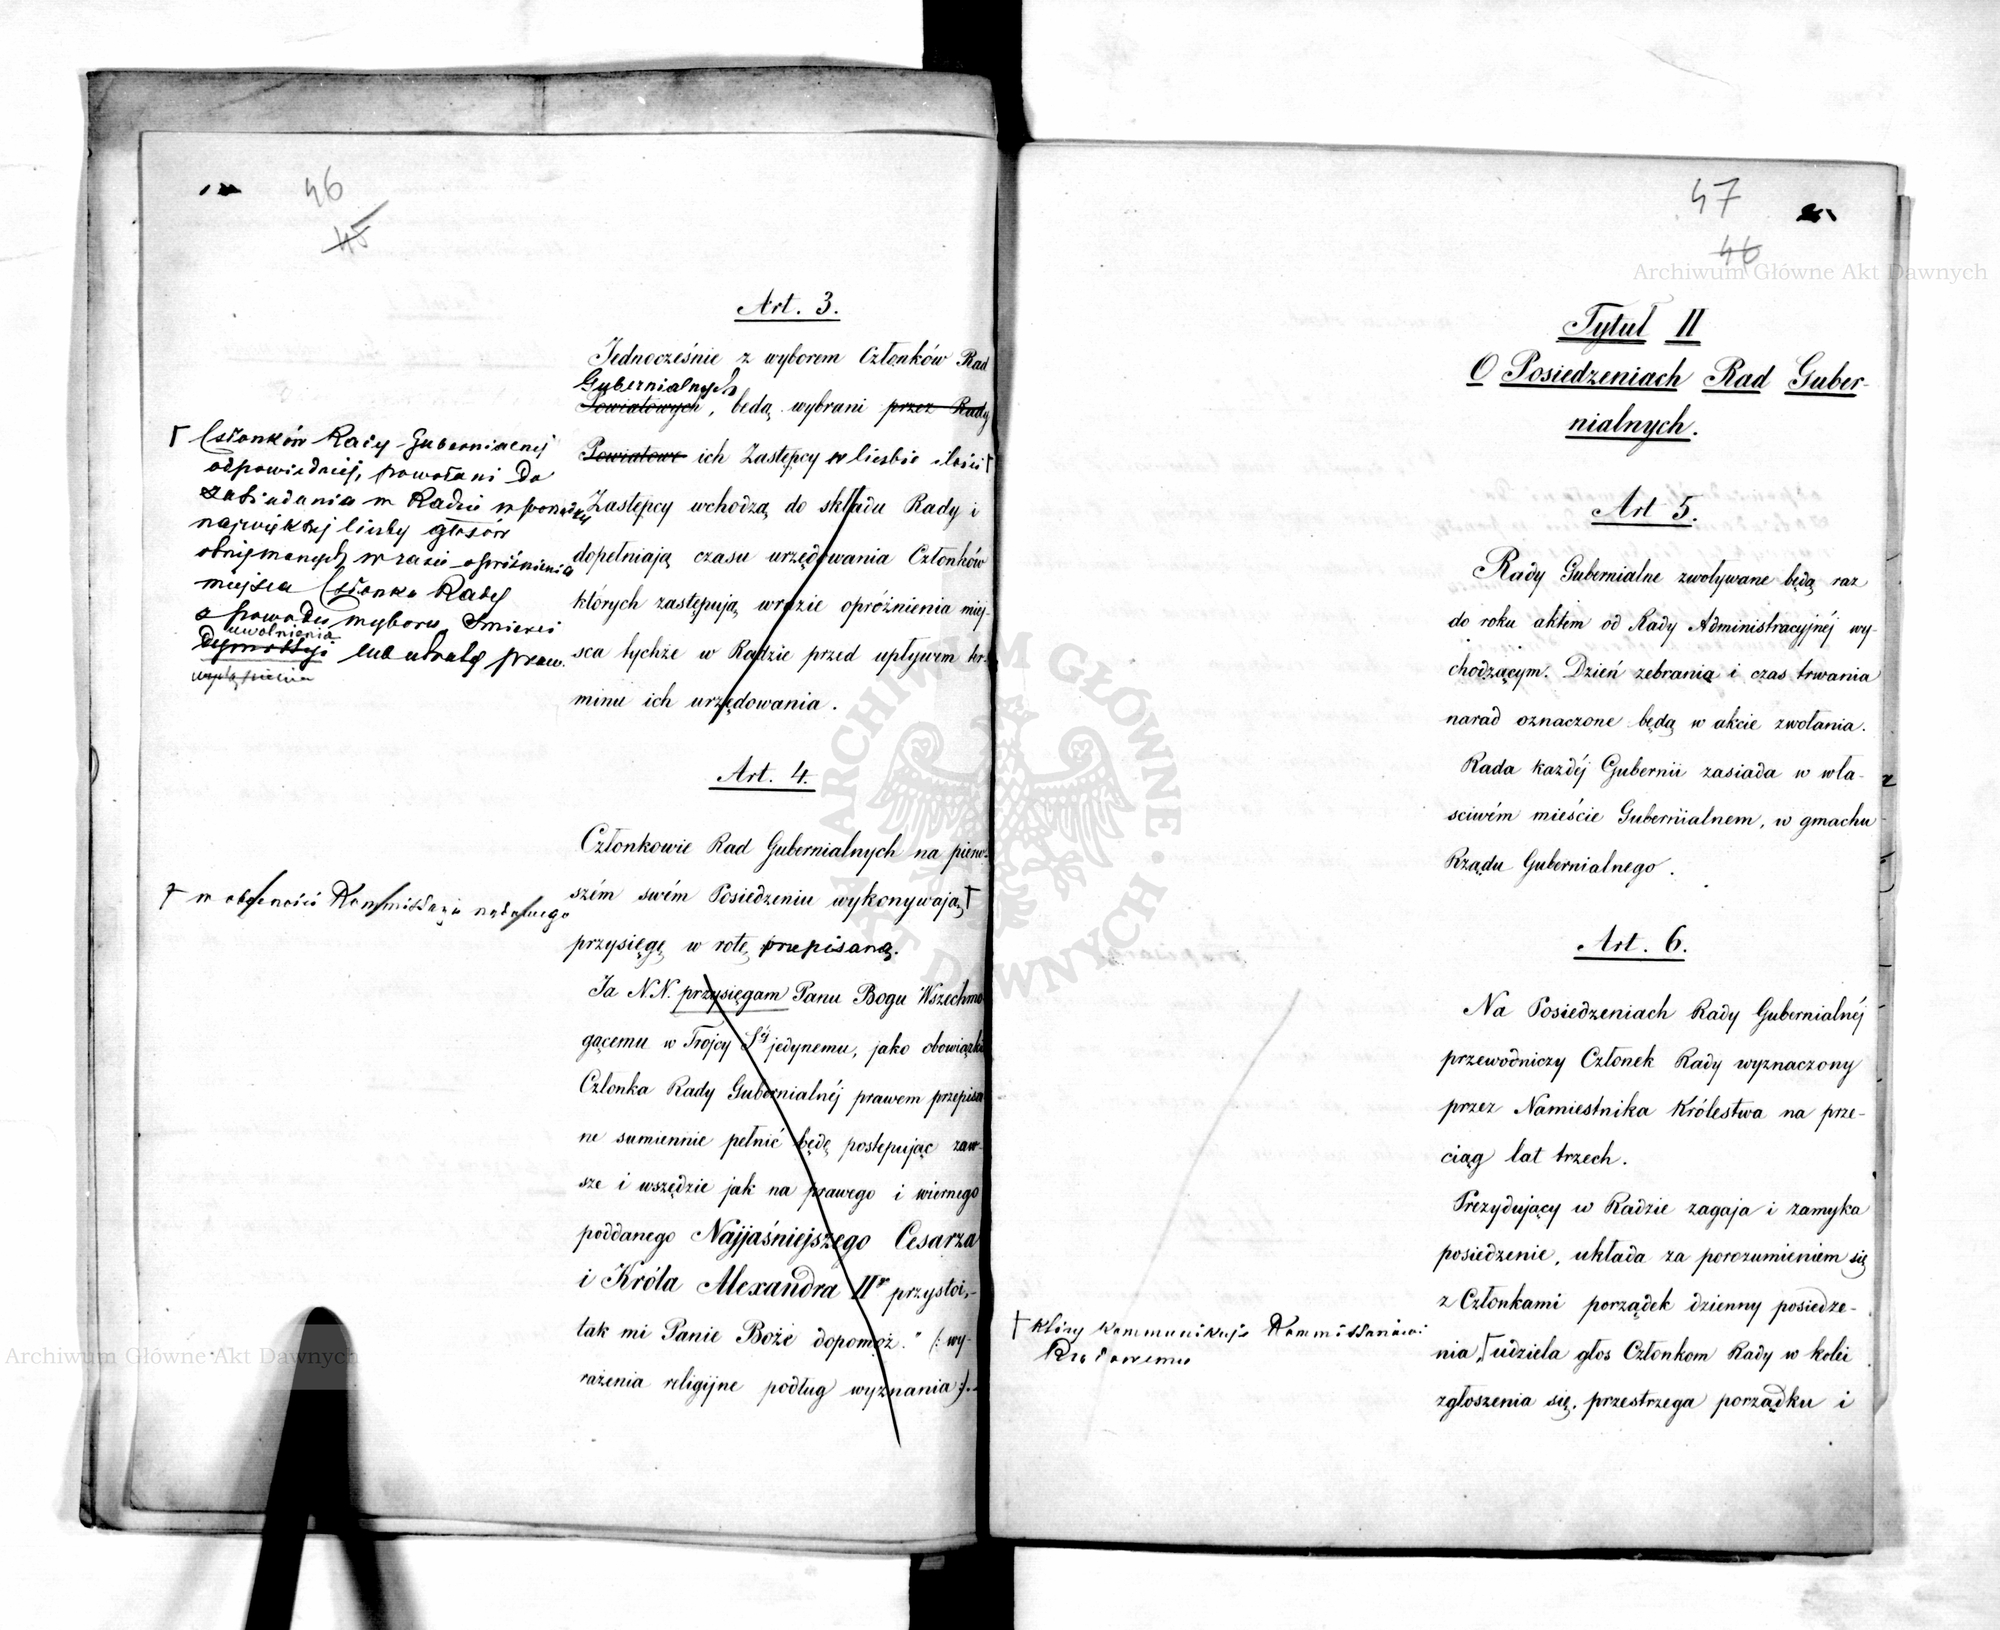 46
45
Art. 3.
Jednocześnie z wyborem Członków Rad
Gubernialnych
Powiatowych, będą wybrani przez Rady
Powiatowe ich Zastępcy w liczbie ilości
Zastępcy wchodzą do składu Rady i
dopełniają czasu urzędowania Członków
których zastępują w razie opróżnienia miej-
sca tychże w Radzie przed upływem ter-
minu ich urzędowania.
Członków Rady Gubernialnej
odpowiedniej, powołani do
zasiadania w Radzie w porządku
największej liczby głosów
otrzymanych w razie opróżnienia
miejsca Członka Rady
z powodu wyboru, śmierci
uwolnienia
dymissyi lub utraty praw.
Art. 4.
Członkowie Rad Gubernialnych na pierw-
szém swém Posiedzeniu wykonywają
† w obecności Kommissarza rządowego
przysięgę w rotę przepisaną.
Ja N.N. przysięgam Panu Bogu Wszechmo-
gącemu w Trójcy Sej jedynemu, jako obowiązki
Członka Rady Gubernialnéj prawem przepisa
ne sumiennie pełnić będę postępując zaw-
sze i wszędzie jak na prawego i wiernego
poddanego Najjaśniejszego Cesarza
i Króla Alexandra IIgo przystoi,-
tak mi Panie Boże dopomóż." (: wy-
rażenia religijne podług wyznania :).-
47
46
Tytuł II
O Posiedzeniach Rad Guber-
nialnych.
Art 5.
Rady Gubernialne zwoływane będą raz
do roku aktem od Rady Administracyjnéj wy-
chodzącym. Dzień zebrania i czas trwania
narad oznaczone będą w akcie zwołania.
Rada każdéj Gubernii zasiada w wła-
sciwém mieście Gubernialnem, w gmachu
Rządu Gubernialnego.
Art. 6.
Na Posiedzeniach Rady Gubernialnéj
przewodniczy Członek Rady wyznaczony
przez Namiestnika Królestwa na prze-
ciąg lat trzech.
Prezydujący w Radzie zagaja i zamyka
posiedzenie, układa za porozumieniem się
z Członkami porządek dzienny posiedze-
† który kommunikuje Kommissarzowi
Rządowemu
nia, udziela głos Członkom Rady w kolei
zgłoszenia się, przestrzega porządku i
Archiwum Główne Akt Dawnych
Archiwum Główne Akt Dawnych
ARCHIWUM GŁÓWNE AKT DAWNYCH